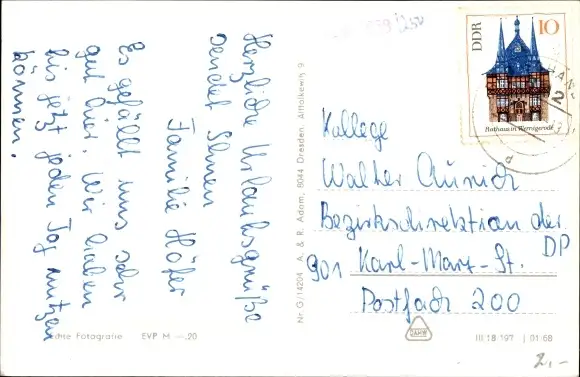 Herzliche Urlaubsgrüße
sendet Ihnen
Familie Höfer
Es gefällt uns sehr
gut hier. Wir haben
bis jetzt jeden Tag nutzen
können.
Echte Fotografie EVP M —.20
Nr G/14204 A. & R. Adam, 8044 Dresden, Altlolkewitz 9
DDR 10
Rathaus in Wernigerode
Kollege
Walter
Bezirksdirektion der
DP
901 Karl-Marx-St.
Postfach 200
III 18 197 01 68
2,-